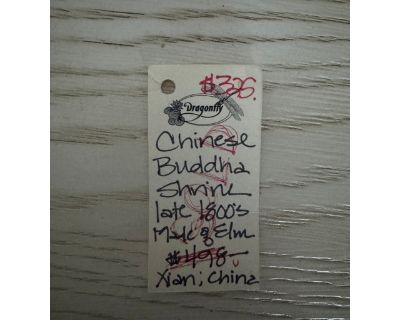 $326.
Dragonfly
Chinese
Buddha
Shrine
late 1800's
Made of Elm
$498-
Xian, China